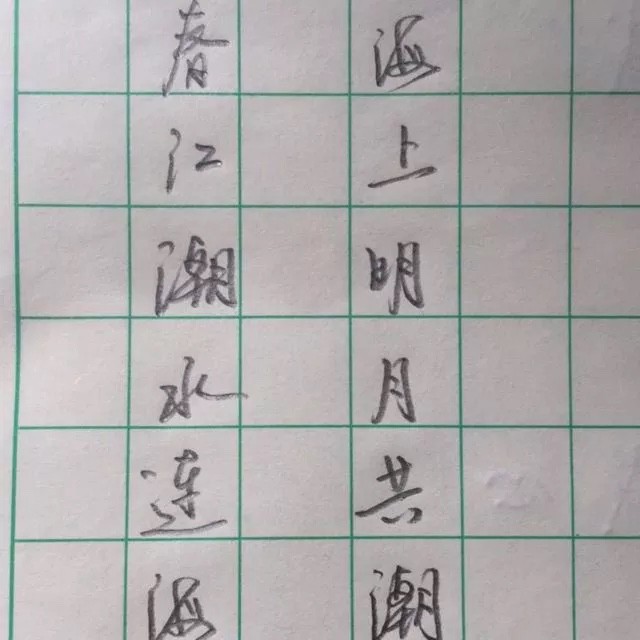 春江潮水连海
海上明月共潮